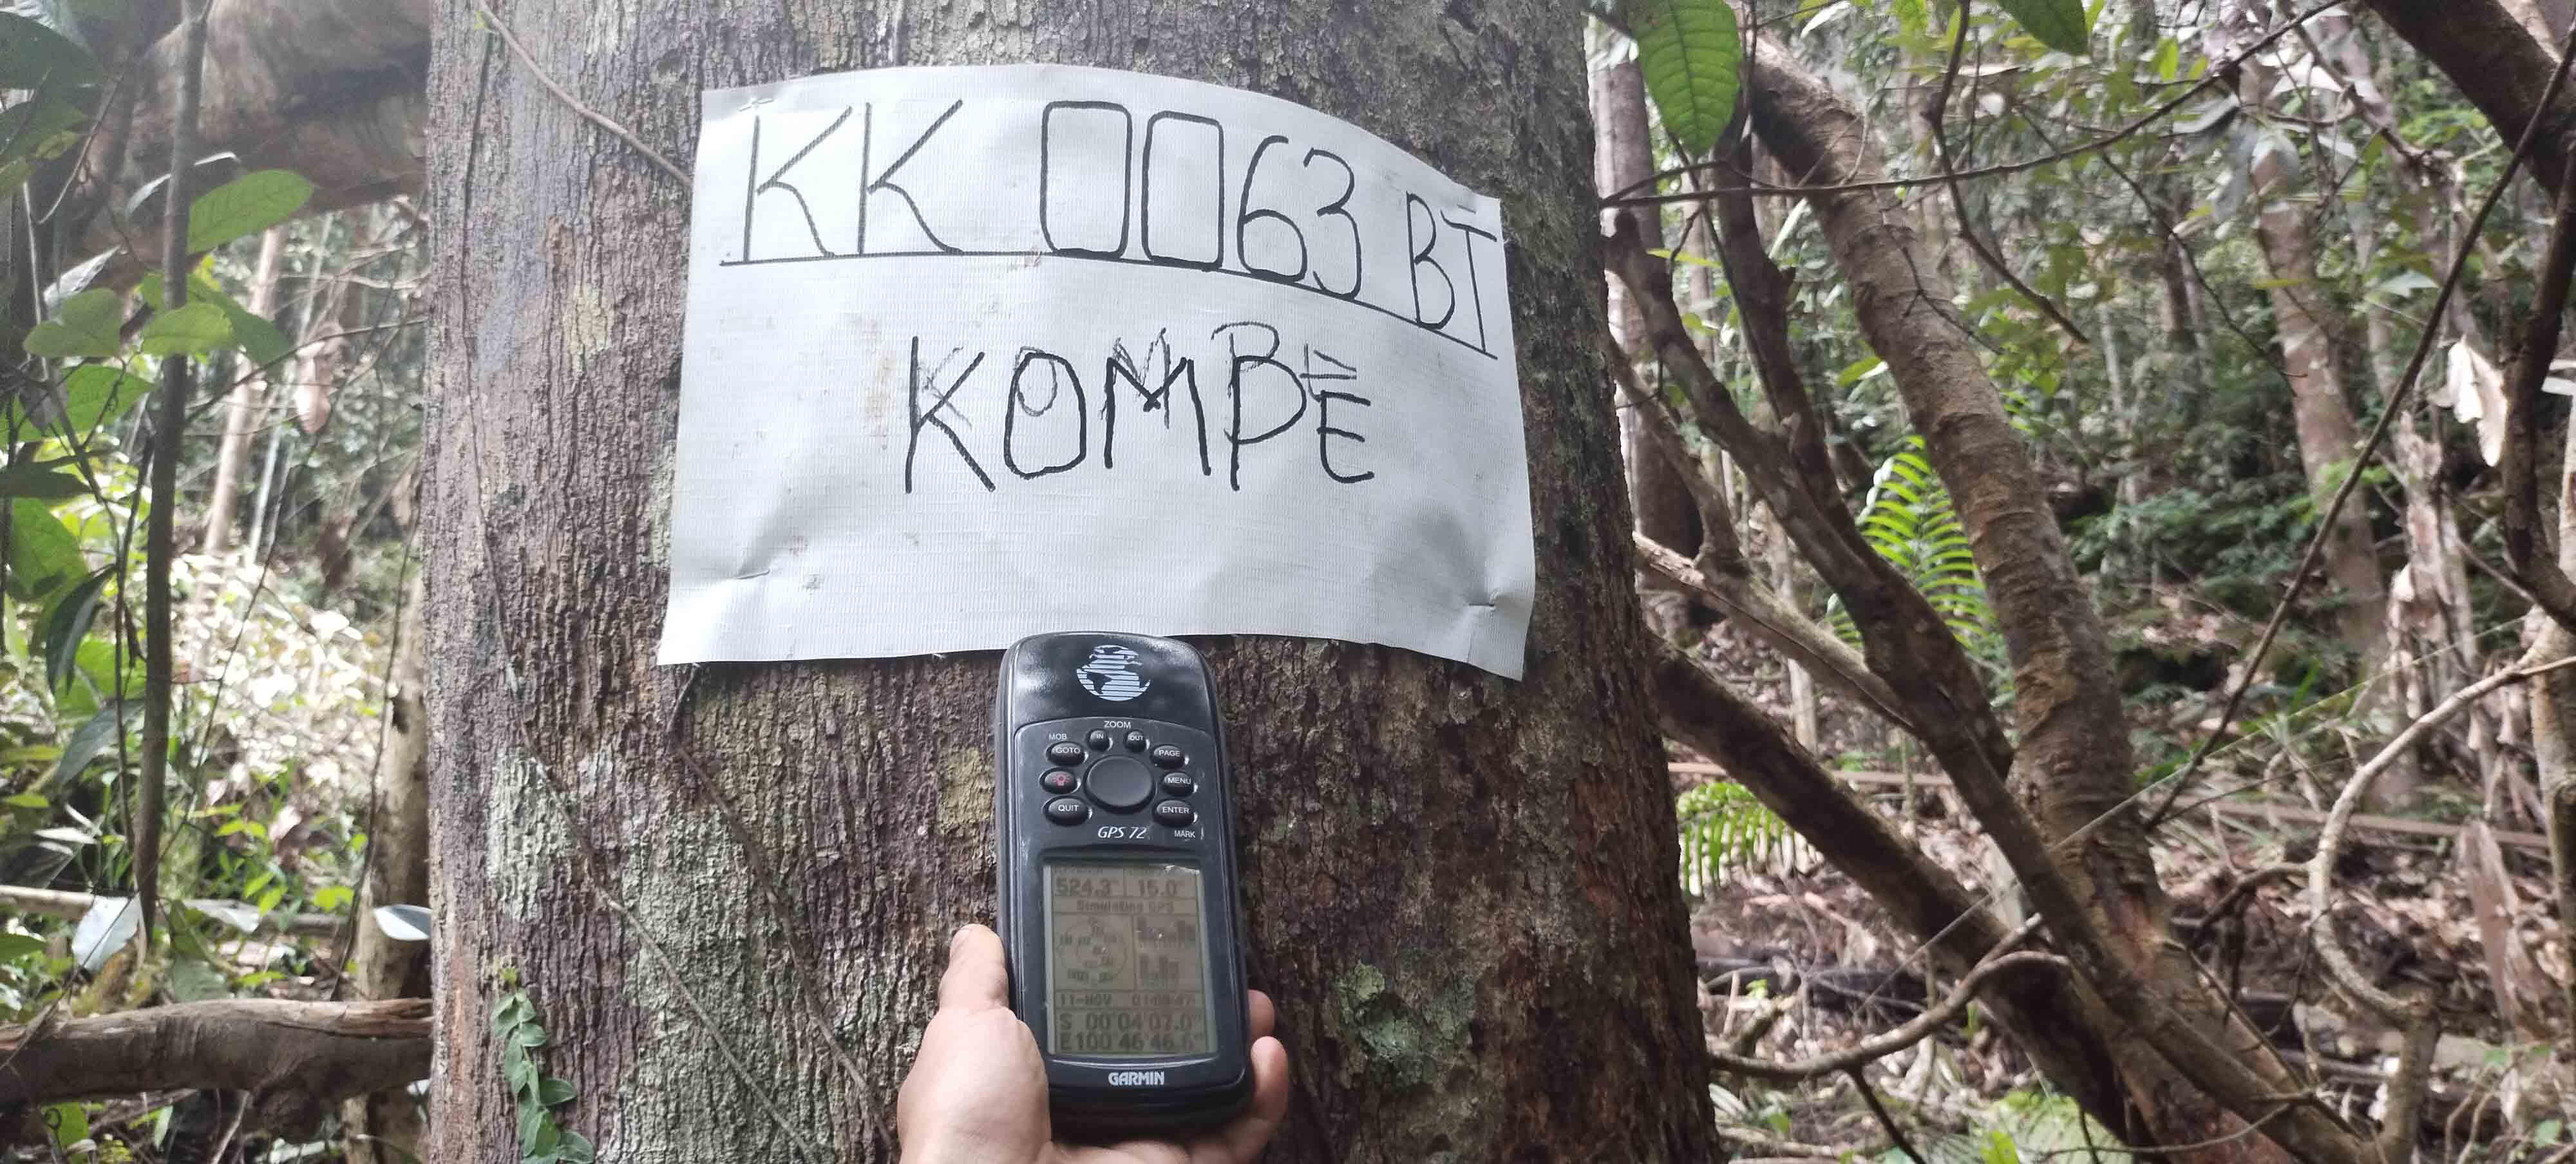 KK 0063 BT
KOMPE
ZOOM
MOB IN OUT
GOTO PAGE
MENU
QUIT ENTER
GPS 72 MARK
524.3 15.0
Simulating GPS
11-NOV
S 00°04'07.0"
E100°46'46.6"
GARMIN